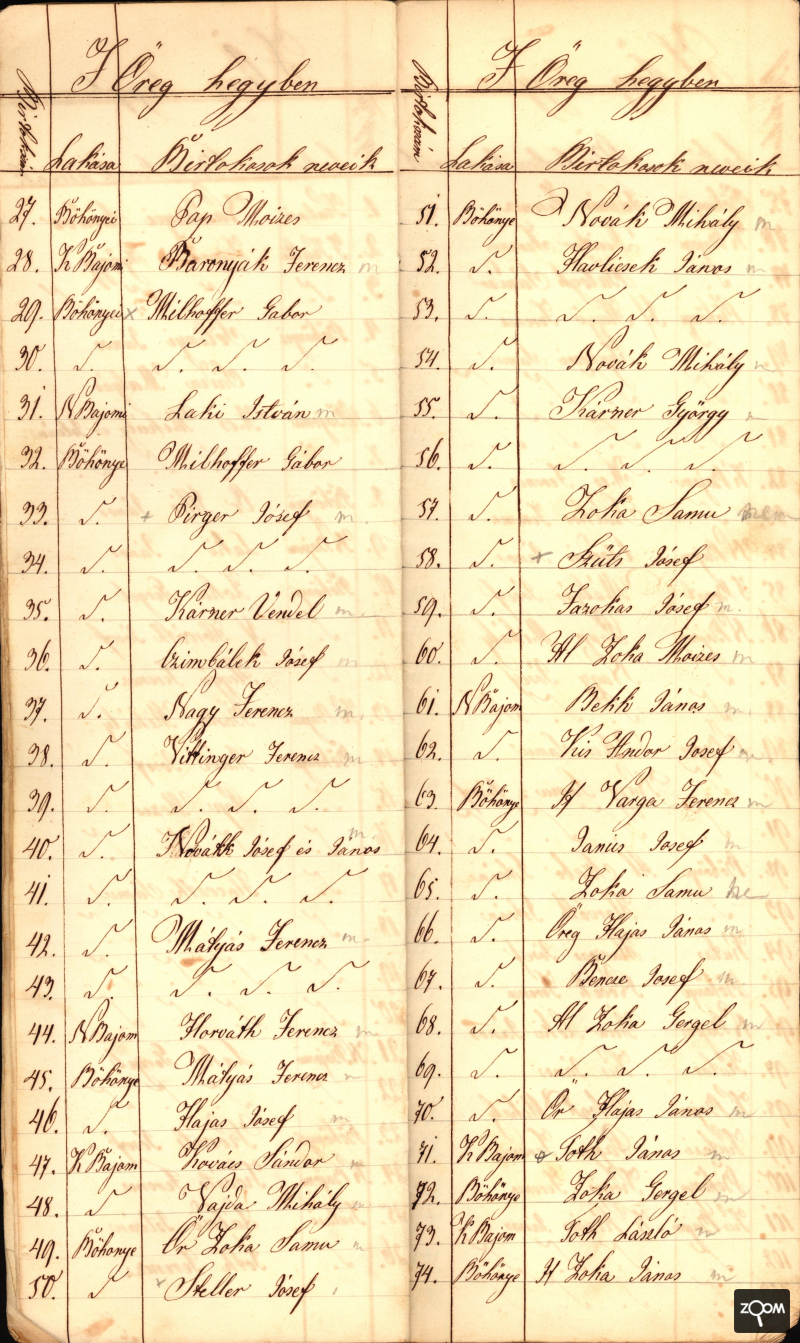 Öreg hegyben
Lakása Birtokosok neveik
27. Böhönyei Pap Moizes
28. K Bajomi Baronyák Ferencz m
29. Böhönyei x Milhoffer Gabor
30. S. S. S. S.
31. N Bajomi Laki István m
32. Böhönye Milhoffer Gábor
33. S. + Pirger Iósef m
34. S. S. S. S.
35. S. Kárner Vendel m
36. S. Czimbálek Iósef m
37. S. Nagy Ferencz m
38. S. Vittinger Ferencz m
39. S. S. S. S.
40. S. Novátk Iósef és Iános m
41. S. S. S. S.
42. S. Mátyás Ferencz m
43. S. S. S. S.
44. N Bajom Horváth Ferencz m
45. Böhönye Mátyás Ferencz
46. S. Hajas Iósef m
47. K Bajom Kovács Sándor m
48. S Vajda Mihály m
49. Böhonye Ör Zoka Samu m
50. S x Steller Iósef
Öreg hegyben
Lakása Birtokosok neveik
51. Böhönye Novák Mihály m
52. S. Havlicsek Iános m
53. S. S. S. S.
54. S. Novák Mihály m
55. S. Kárner György m
56. S. S. S. S.
57. S. Zoka Samu
58. S. + Szüts Iósef
59. S. Fazokas Iósef m.
60. S. Al Zoka Moizes m
61. N Bajom Bekk Iános m.
62. S. Kis Andor Iosef m
63. Böhönye If Varga Ferencz m
64. S. Ianus Iosef m
65. S. Zoka Samu
66. S. Öreg Hajas Iános m
67. S. Bencze Iosef m
68. S. Al Zoka Gergel m
69. S. S. S. S.
70. S. Ör Hajas Iános m
71. K Bajom Toth Iános m
72. Böhönye Zoka Gergel m
73. K Bajom Toth László m
74. Böhönye If Zoka Iános m
ZOOM